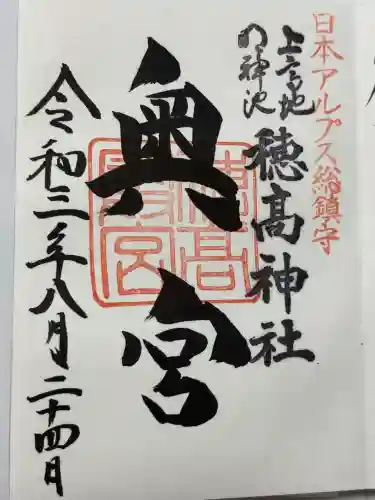 日本アルプス総鎮守
上高地
の神池
穂高神社
奥宮
令和三年八月二十四日